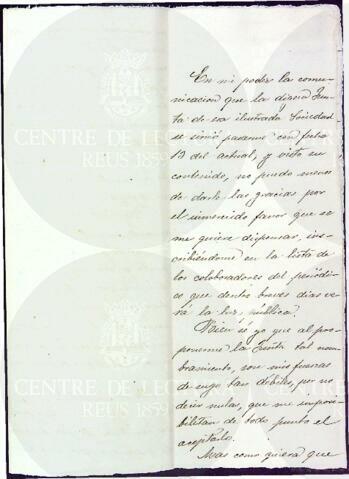 En mi poder la comu-
nicacion que la digna Jun-
ta de esa ilustrada Sociedad
se sirvió pasarme con fecha
13 del actual, y visto su
contenido, no puedo menos
de darle las gracias por
el inmerecido favor que se
me quiere dispensar, ins-
cribiéndome en la lista de
los colaboradores del periódi-
co que dentro breves dias ve-
rá la luz pública.
Bien sé yo que al pro-
ponerme la Junta tal nom-
bramiento, son mis fuerzas
de suyo tan débiles, por no
decir nulas, que me imposi-
bilitan de todo punto el
aceptarlo.
Mas como quiera que
CENTRE DE LECTURA
REUS 1859
CENTRE DE LECTURA
REUS 1859